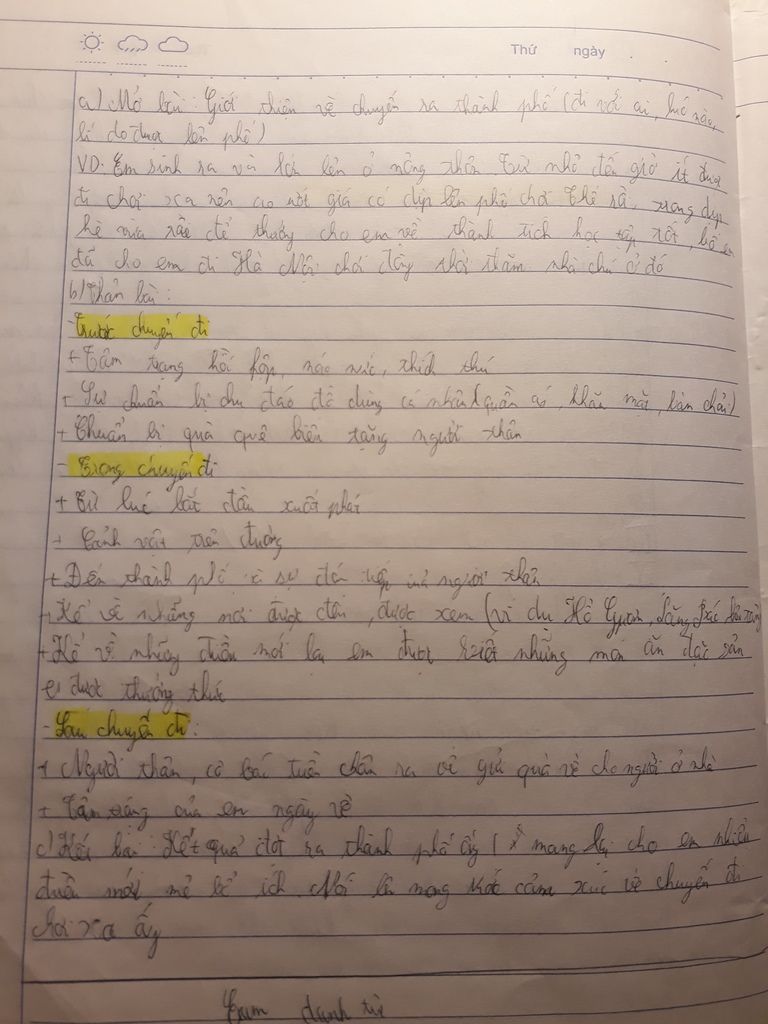 Thứ ngày
a) Mở bài: Giới thiện về chuyến ra thành phố (đi với ai, lúc nào,
lí do đưa lên phố)
VD: Em sinh ra và lớn lên ở nông thôn. Từ nhỏ đến giờ ít được
đi chơi xa nên ao ước giá có dịp lên phố chơi. Thế rồi, trong dịp
hè vừa rồi để thưởng cho em về thành tích học tập tốt, bố em
đã cho em đi Hà Nội chơi đồng thời thăm nhà chú ở đó
b) Thân bài:
- Trước chuyến đi
+ Tâm trạng hồi hộp, náo nức, thích thú
+ Sự chuẩn bị chu đáo đồ dùng cá nhân (quần áo, khăn mặt, bàn chải)
+ Chuẩn bị quà quê biếu tặng người thân
- Trong chuyến đi
+ Từ lúc bắt đầu xuất phát
+ Cảnh vật trên đường
+ Đến thành phố và sự đón tiếp của người thân
+ Kể về những nơi được đến, được xem (ví dụ Hồ Gươm, Lăng Bác
+ Kể về những điều mới lạ em được biết những món ăn đặc sản
em được thưởng thức
- Sau chuyến đi:
+ Người thân, cô bác tiễn chân ra về gửi quà về cho người ở nhà
+ Tâm trạng của em ngày về
c) Kết bài: Kết quả đợt ra thành phố ấy mang lại cho em nhiều
điều mới mẻ bổ ích. Nói lên mong ước cảm xúc về chuyến đi
chơi xa ấy
Cụm danh từ